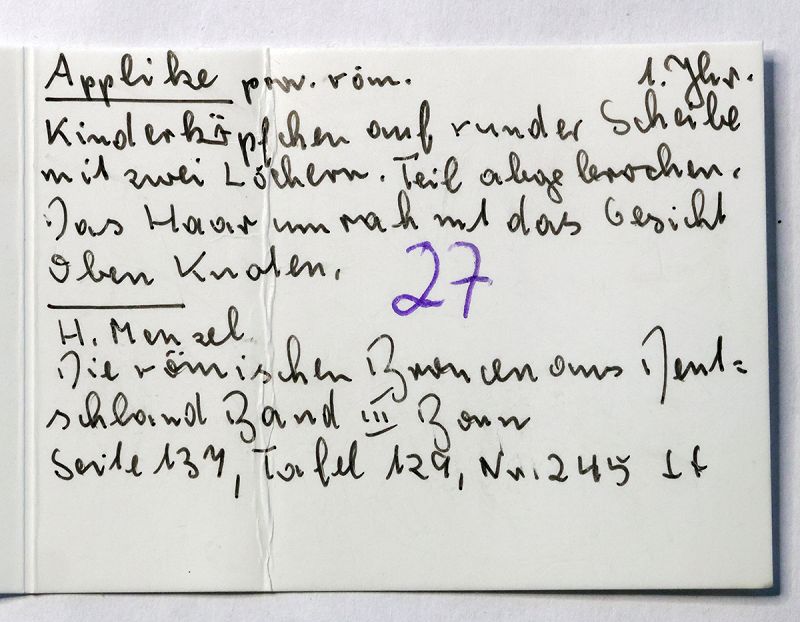 Applike prov. röm. 1. Jhr.
Kinderköpfchen auf runder Scheibe
mit zwei Löchern. Teil abgebrochen.
Das Haar umrahmt das Gesicht
Oben Knoten.
27
H. Menzel
Die römischen Broncen aus Deut=
schland Band III Bonn
Seite 137, Tafel 129, Nr. 245